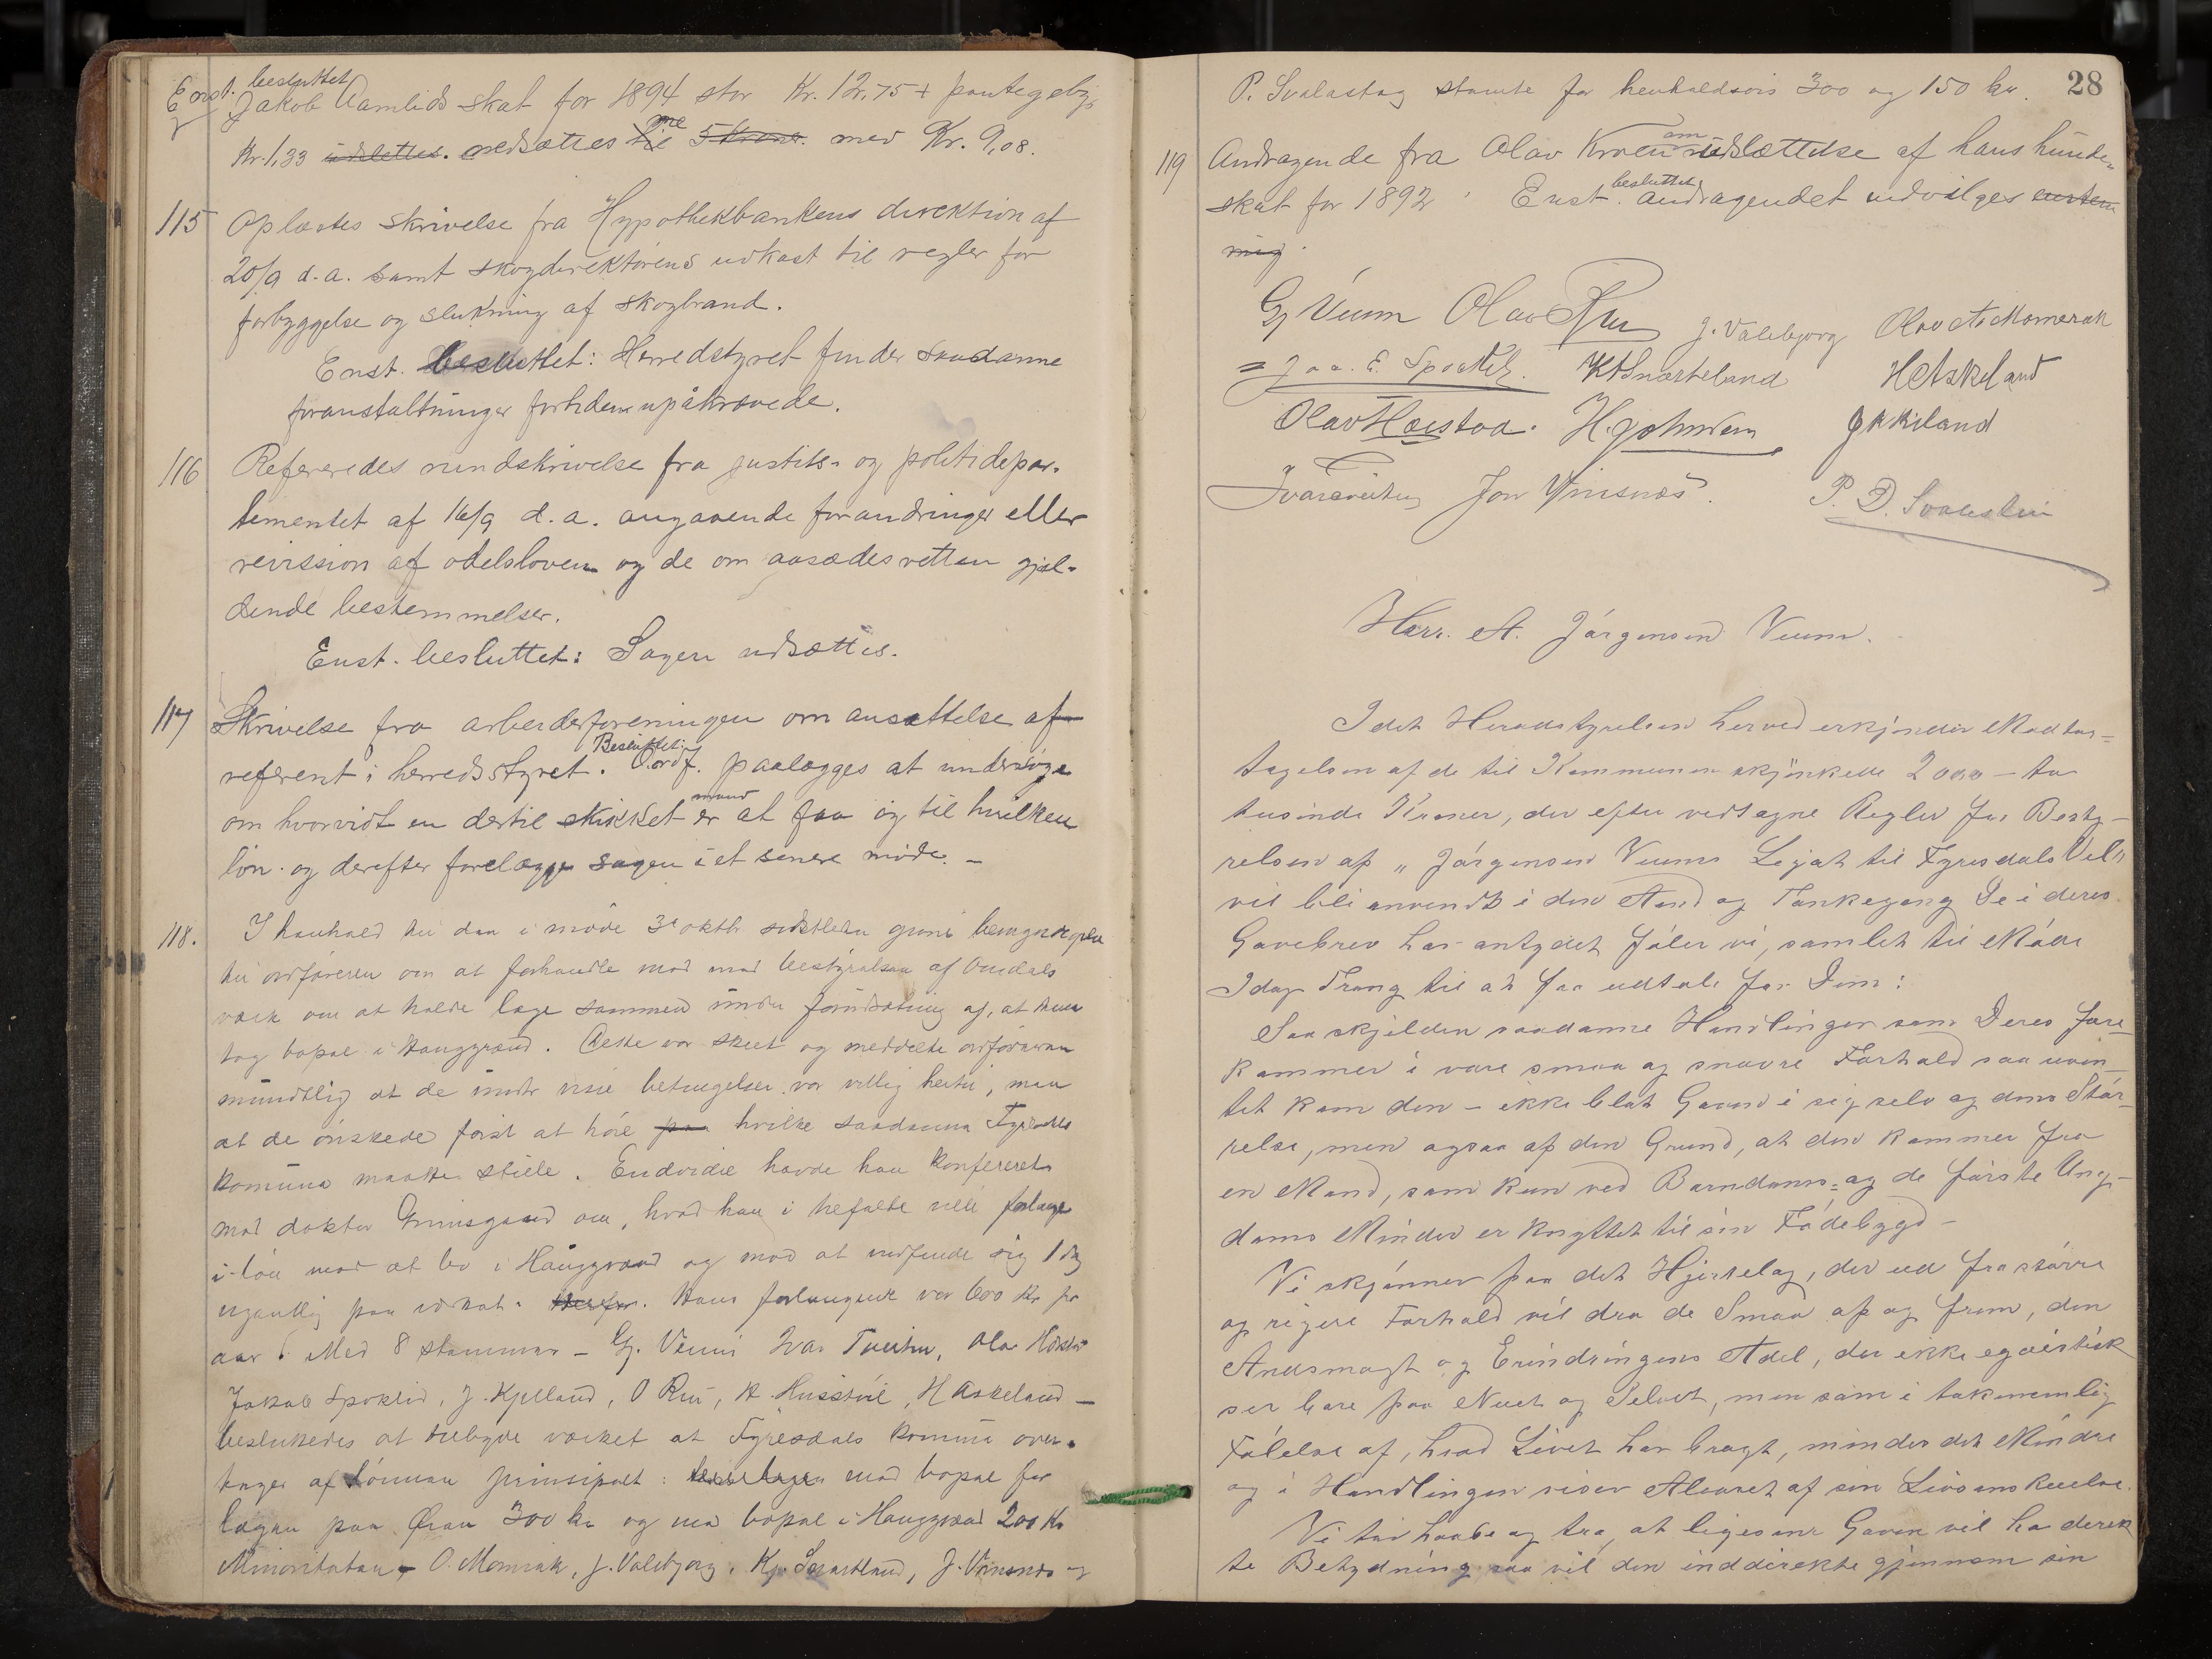 Enst. besluttet
Jakob Aamlids skat for 1894 stor Kr. 12,75 + pantegebyr
Kr. 1,33 udslettes. nedsættes til 5 kroner. med Kr. 9,08.
115 Oplæstes skrivelse fra Hypothekbankens direktion af
20/9 d.a. samt skogdirektørens udkast til regler for
forbyggelse og slukning af skogbrand.
Enst. besluttet: Herredstyret finder saadanne
foranstaltninger fortiden upåkrævede.
116 Refereredes rundskrivelse fra justits- og politidepar-
tementet af 16/9 d.a. angaaende forandringer eller
revission af odelsloven og de om aasædesretten gjel-
dende bestemmelser.
Enst. besluttet: Sagen udsættes.
117 Skrivelse fra arbeiderforeningen om ansættelse af
referent i herredsstyret. Besluttet: Ordf. paalægges at undersöge
om hvorvidt en dertil skikket mand er at faa og til hvilken
lön og derefter forelægge sagen i et senere möde. –
118. I henhold til den i möde 3 oktbr. sidstleden givne bemyndigelse
til ordföreren om at forhandle med bestyrelsen af Omdals
værk om at holde læge sammen under forudsætning af, at denne
tog bopæl i Hauggrænd. Dette var skeet og meddelte ordföreren
mundtlig at de under visse betingelser var villig hertil, men
at de önskede först at höre hvilke saadanne Fyresdals
komune maatte stille. Endvidere havde han konfereret
med doktor Grimsgaard om, hvad han i tilfælde ville forlange
i lön med at bo i Hauggrænd og med at indfinde sig 1 dag
ugentlig paa . Hans forlangende var 600 Kr pr
aar. Med 8 stemmer – G. Veum Ivar Tveiten, Olav Höistad
Jakob Spoklid, J. Kjelland, O Rui, H. Husstöil, H Askeland –
besluttedes at tilbyde værket at Fyresdals komune over-
tager af lönnen prinsipalt: med bopæl for
lægen paa Øran 300 kr og med bopæl i Hauggrænd 200 Kr
Minoriteten – O. Momrak, J. Valebjorg, Kj. Snartland, J. Vinsnes og
28
P. Svalastog stemte for henholdsvis 300 og 150 kr.
119 Andragende fra Olav Kroen om udslættelse af hans hunde-
skat for 1892. Enst. besluttet andragendet indvilges enstem
mig
G Veum Olav Rui J. Valebjorg Olav A Momrak
Jac. E. Spoklid. K H Snarteland H Askeland
Olav Höistad. H. J. Kiland
Ivar Tveiten Jon Vinsnæs. P. D. Svalestuen
Herr. A. Jørgensen Veum.
Idet Heradstyrelsen herved erkjender Modta-
tagelsen af de til Kommunen skjænkede 2000 – to
tusinde Kroner, der efter vedtagne Regler for Besty-
relsen af „Jørgensen Veums Legat til Fyresdals Vel“
vil bli anvendt i den Aand og Tankegang De i deres
Gavebrev har antydet føler vi, samlet til Møde
Idag Trang til at faa udtale for Dem:
Saa skjelden saadanne Handlinger som Deres fore-
kommer i vore smaa og snævre Forhold saa uven-
tet kom den – ikke blot Gaven i sig selv og dens Stør-
relse, men ogsaa af den Grund, at den kommer fra
en Mand, som kun ved Barndoms- og de første Ung-
doms Minder er knyttet til sin Fødebygd –
Vi skjønner paa det Hjertelag, der ud fra større
og rigere Forhold vil dra de Smaa op og frem, den
Aandsmagt og Erindringens Adel, der ikke egoistisk
ser bare paa Nuet og Selvet, men som i taknemlig
Følelse af, hvad Livet har bragt, mindes det Mindre
og i Handlingen viser Alvoret af sin Livsanskuelse.
Vi tør haabe og tro, at ligesom Gaven vil ha direk
te Betydning saa vil den inddirekte gjennem sin